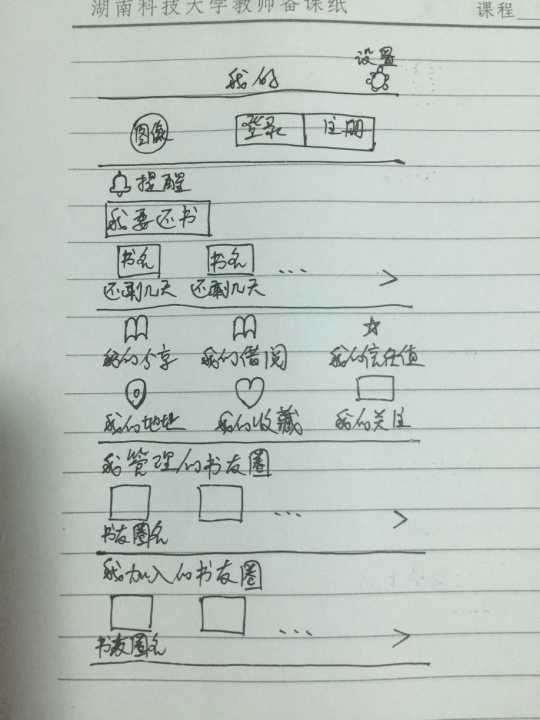 湖南科技大学教师备课纸 课程
设置
我的
图像 登录 注册
提醒
我要还书
书名 书名 ...
还剩几天 还剩几天 >
我的分享 我的借阅 我的信任值
我的地址 我的收藏 我的关注
我管理的书友圈
... >
书友圈名
我加入的书友圈
... >
书友圈名